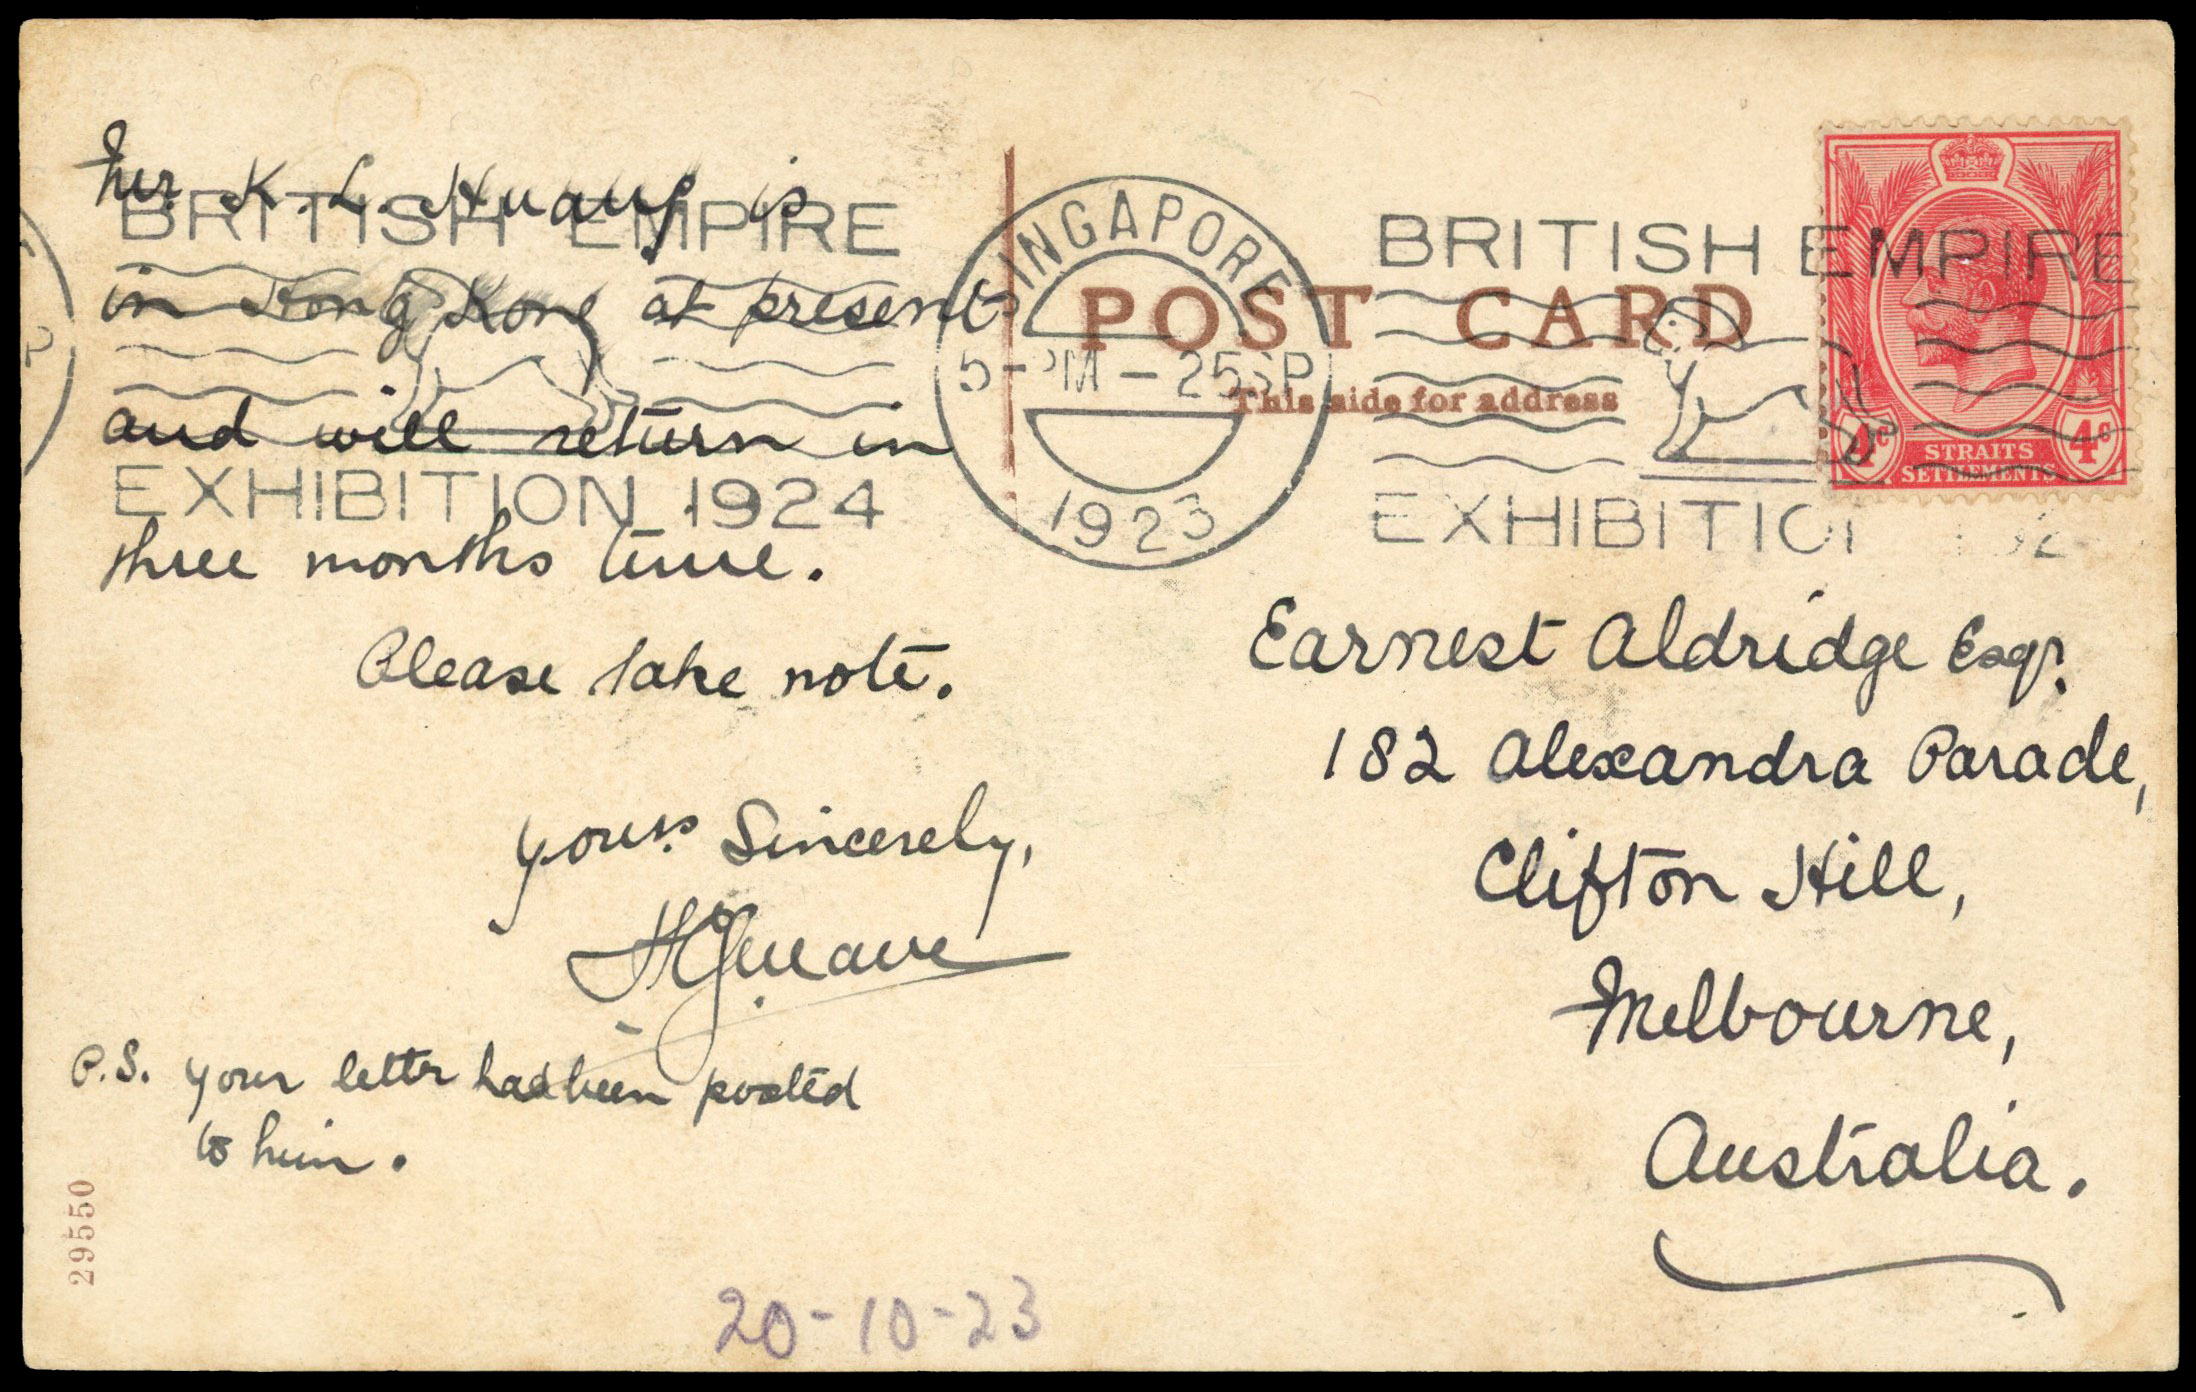 Mr. K. L. Huang is
in Hong Kong at present
and will return in
three months time.
Please take note.
yours Sincerely,
P.S. your letter had been posted
to him.
29550
20-10-23
BRITISH EMPIRE
EXHIBITION 1924
SINGAPORE
5-PM - 25 SP
1923
POST CARD
This side for address
BRITISH EMPIRE
EXHIBITION
4c 4c
STRAITS
SETTLEMENTS
Earnest Aldridge Esqr.
182 Alexandra Parade,
Clifton Hill,
Melbourne,
Australia.